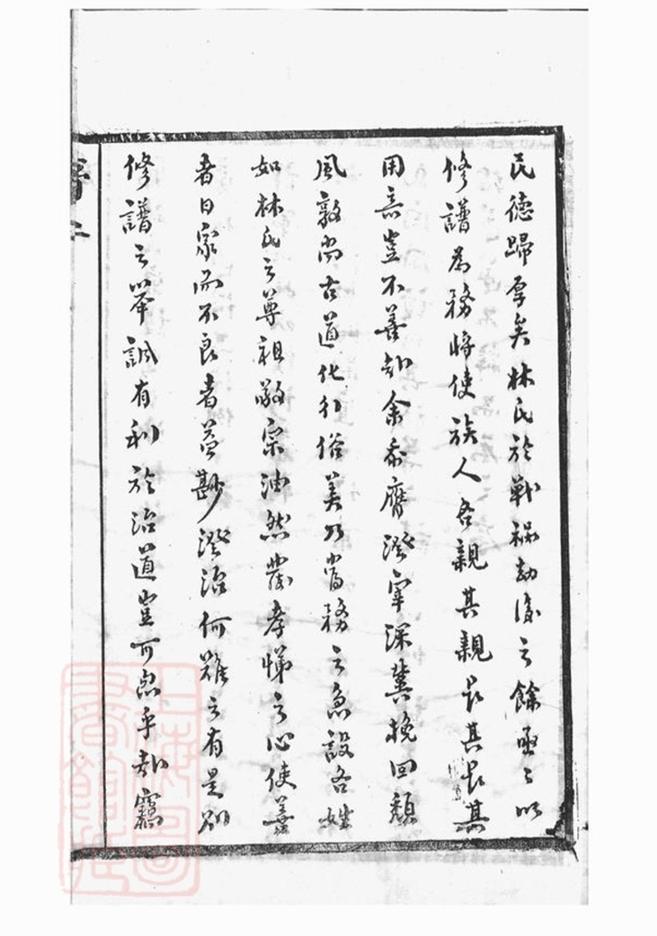 民德歸厚矣林氏於戰禍劫後之餘亟亟以
修譜為務將使族人各親其親長其長其
用意豈不善歟余忝膺澄宰深冀挽回頹
風敦尚古道化行俗美乃當務之急設各姓
如林氏之尊祖敬宗油然發孝悌之心使善
者日眾而不良者益尠澄治何難之有是則
修譜之舉誠有利於治道豈可忽乎哉竊